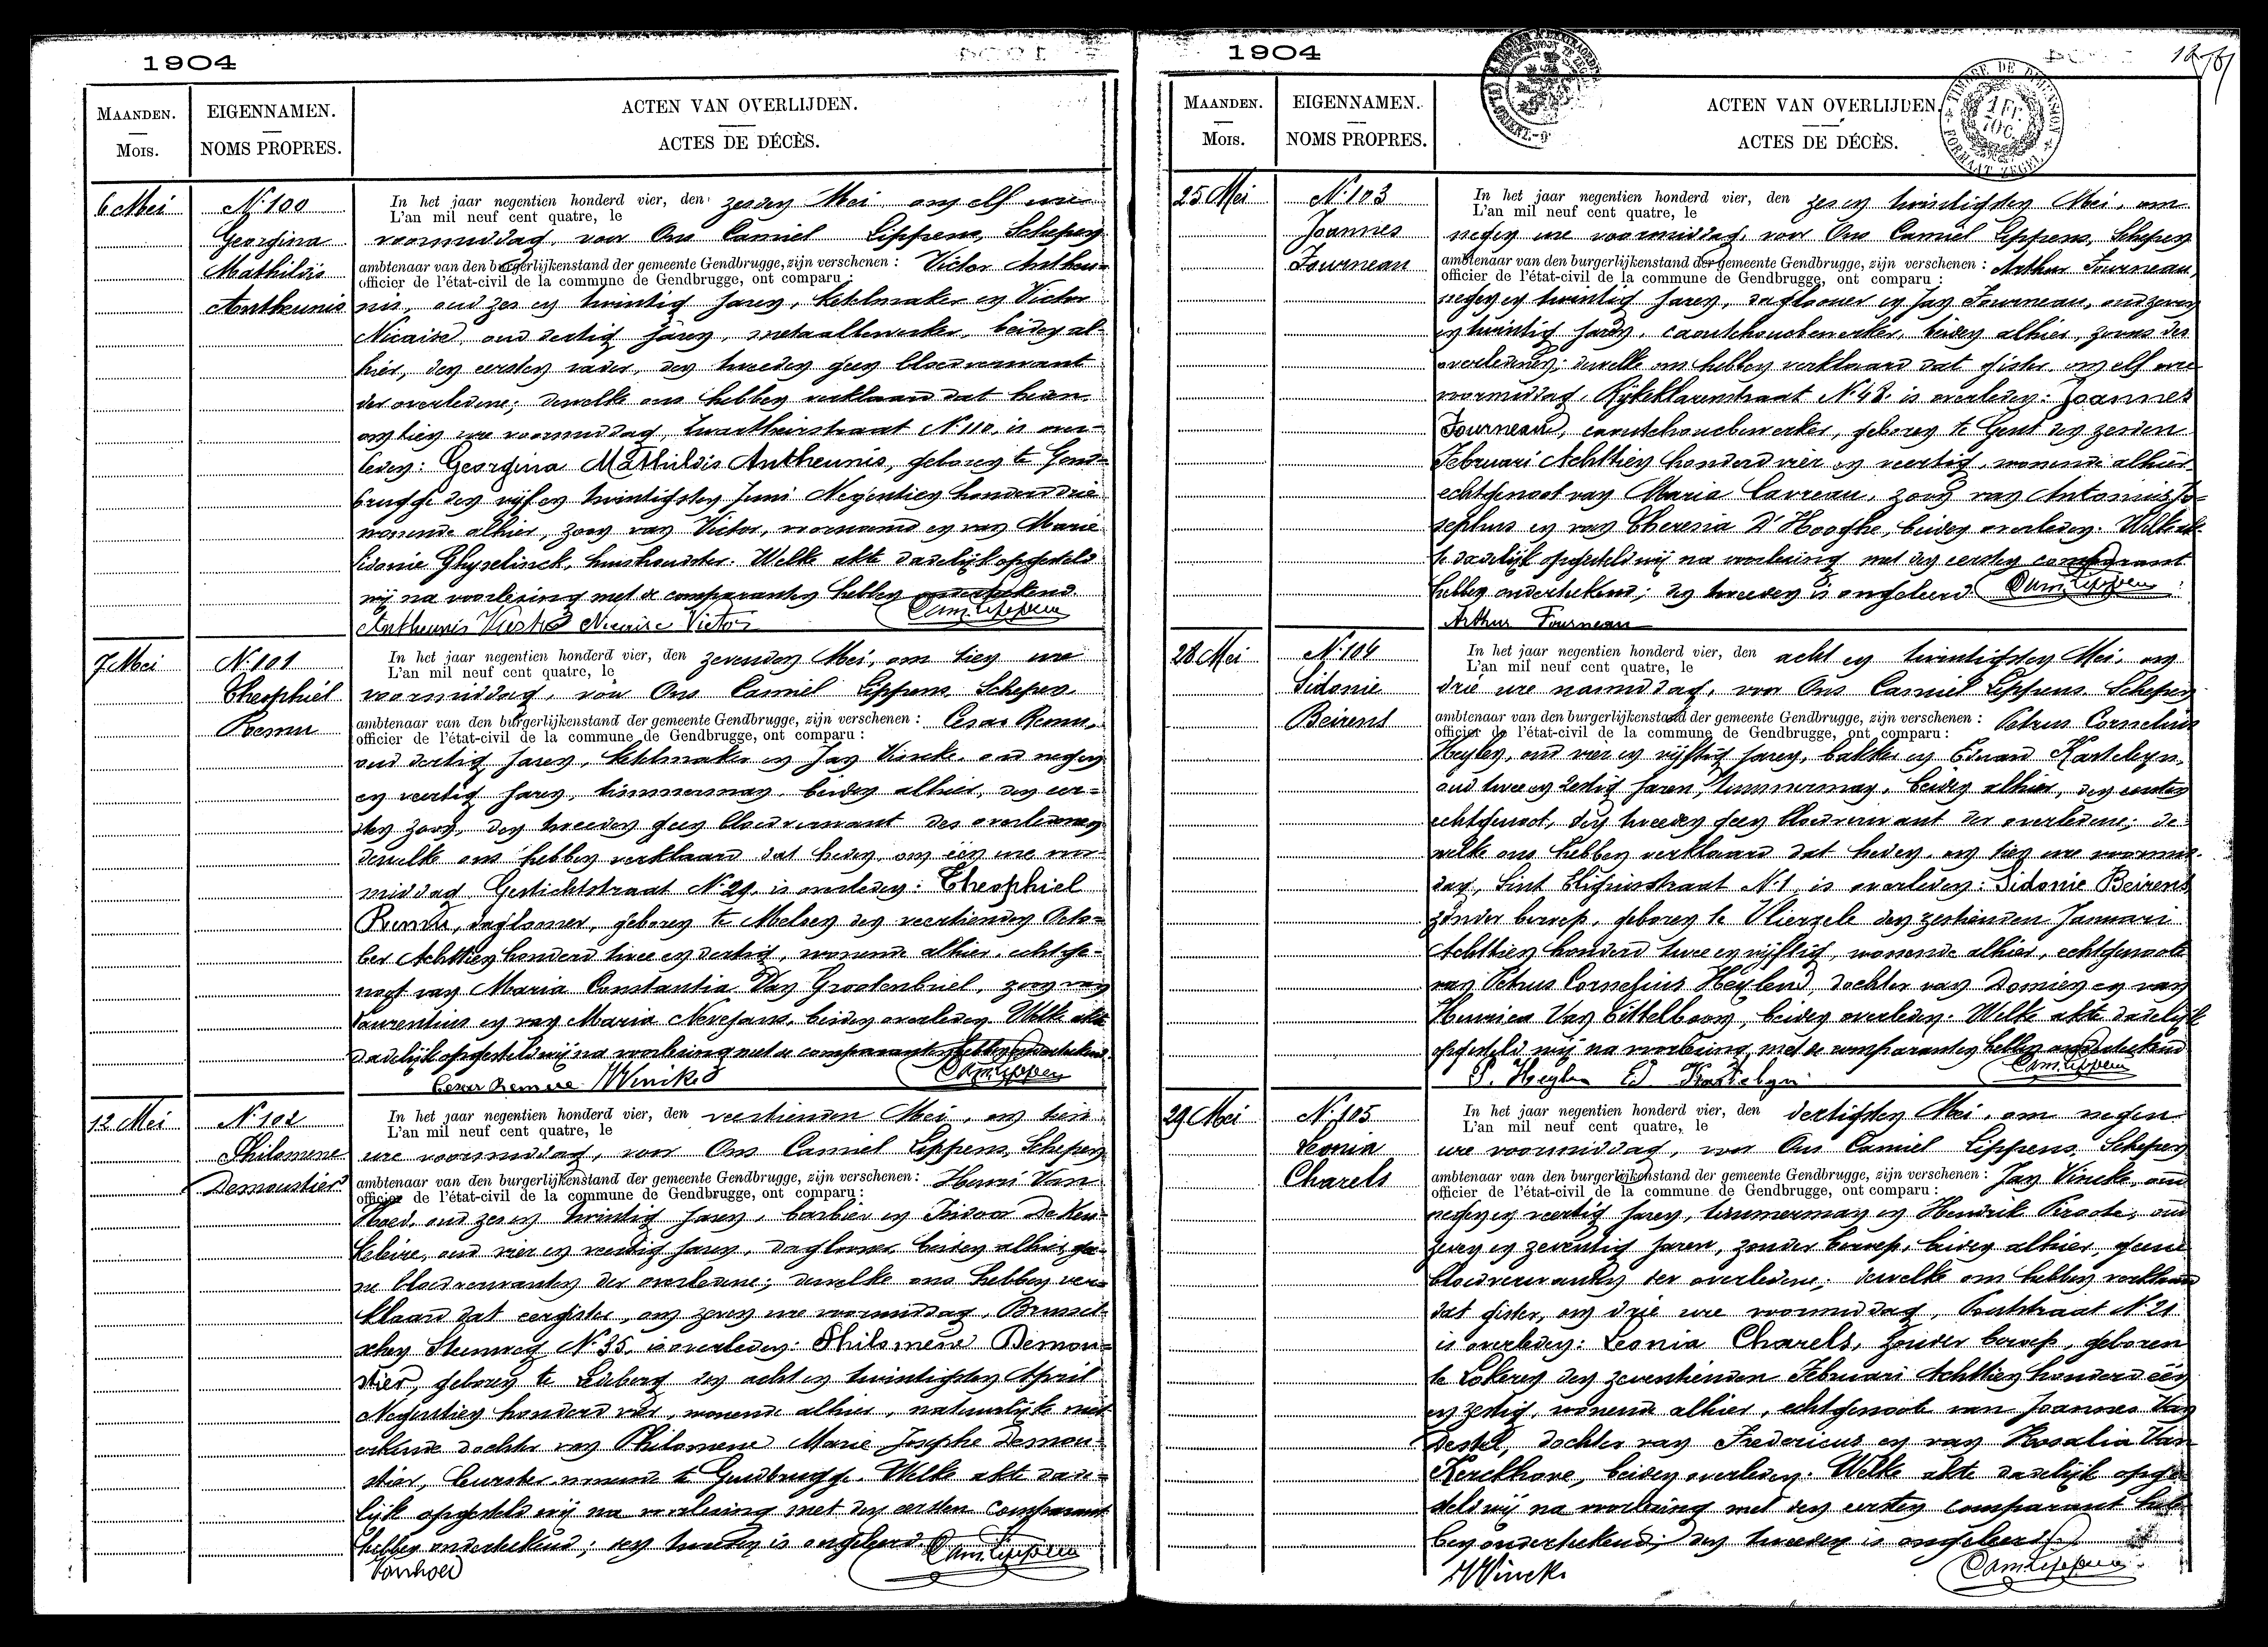 1904
MAANDEN.
MOIS.
EIGENNAMEN.
NOMS PROPRES.
ACTEN VAN OVERLIJDEN.
ACTES DE DÉCÈS.
6 Mei
N. 100
Georgina
Mathildis
Antheunis
In het jaar negentien honderd vier, den zesden Mei, om elf ure
L'an mil neuf cent quatre, le
voormiddag, voor Ons Camiel Lippens, Schepen
ambtenaar van den burgerlijkenstand der gemeente Gendbrugge, zijn verschenen : Victor Antheu-
officier de l'état-civil de la commune de Gendbrugge, ont comparu :
nis, oud zes en twintig jaren, ketelmaker en Victor
Nicaise, oud dertig jaren, metaalbewerker, beiden al-
hier, den eersten vader, den tweeden geen bloedverwant
der overledene; dewelke ons hebben verklaard dat heden
om tien ure voormiddag, N. 110, is over-
leden: Georgina Mathildis Antheunis, geboren te Gend-
brugge den vijf en twintigsten Juni Negentien honderd drie
wonende alhier, zoon van Victor, voornoemd en van Marie
Sidonie Ghyselinck, huishoudster. Welke akte dadelijk opgesteld
wij na voorlezing met de comparanten hebben onderteekend
Antheunis Victor Nicaise Victor Cam. Lippens
7 Mei
N. 101
Theophiel
Remu
In het jaar negentien honderd vier, den zevenden Mei, om tien ure
L'an mil neuf cent quatre, le
voormiddag, voor Ons Camiel Lippens, Schepen
ambtenaar van den burgerlijkenstand der gemeente Gendbrugge, zijn verschenen : Cesar Remu,
officier de l'état-civil de la commune de Gendbrugge, ont comparu :
oud dertig jaren, ketelmaker en Jan Vincke, oud negen
en veertig jaren, timmerman, beiden alhier, den eer-
sten zoon, den tweeden geen bloedverwant des overledenen
dewelke ons hebben verklaard dat heden, om één ure voor-
middag Gestichtstraat N. 29, is overleden: Theophiel
Remu, daglooner, geboren te Melsen den veertienden Octo-
ber Achttien honderd twee en dertig, wonende alhier, echtge-
noot van Maria Constantia Van Grootenbriel, zoon van
Laurentius en van Maria Nevejans, beiden overleden. Welke akte
dadelijk opgesteld wij na voorlezing met de comparanten hebben onderteekend
Cesar Remue J Vincke Cam. Lippens
12 Mei
N. 102
Philomene
Demoustier
In het jaar negentien honderd vier, den veertienden Mei, om tien
L'an mil neuf cent quatre, le
ure voormiddag, voor Ons Camiel Lippens, Schepen
ambtenaar van den burgerlijkenstand der gemeente Gendbrugge, zijn verschenen : Henri Van
officier de l'état-civil de la commune de Gendbrugge, ont comparu :
Hoed, oud zes en twintig jaren, barbier en Isidoor De Keu-
keleire, oud vier en veertig jaren, daglooner, beiden alhier gee-
ne bloedverwanten der overledene; dewelke ons hebben ver-
klaard dat eergister, om zeven ure voormiddag, Brussel-
schen Steenweg N. 35, is overleden: Philomene Demou-
stier, geboren te Ledeberg den acht en twintigsten April
Negentien honderd vier, wonende alhier, natuurlijke niet
erkende dochter van Philomene Marie Josephe Demou-
stier, wonende te Gendbrugge. Welke akte dade-
lijk opgesteld wij na voorlezing met den eersten comparant
hebben onderteekend; den tweeden is ongeleerd. Cam. Lippens
Vanhoed
1904
MAANDEN.
MOIS.
EIGENNAMEN.
NOMS PROPRES.
ACTEN VAN OVERLIJDEN.
ACTES DE DÉCÈS.
TIMBRE DE DIMENSION
FORMAAT ZEGEL
25 Mei
N. 103
Joannes
Fourneau
In het jaar negentien honderd vier, den zes en twintigsten Mei, om
L'an mil neuf cent quatre, le
negen ure voormiddag, voor Ons Camiel Lippens, Schepen
ambtenaar van den burgerlijkenstand der gemeente Gendbrugge, zijn verschenen : Arthur Fourneau,
officier de l'état-civil de la commune de Gendbrugge, ont comparu :
negen en twintig jaren, daglooner en Jan Fourneau, oud zeven
en twintig jaren, caoutchoucbewerker, beiden alhier, zoons des
overledenen; dewelke ons hebben verklaard dat gister, om elf ure
voormiddag, Rijkeklarenstraat N. 48, is overleden: Joannes
Fourneau, caoutchoucbewerker, geboren te Gent den zesden
Februari Achttien honderd vier en veertig, wonende alhier
echtgenoot van Maria Carreau, zoon van Antonius Jo-
sephus en van Theresia D'Hooghe, beiden overleden. Welke ak-
te dadelijk opgesteld wij na voorlezing met den eersten comparant
hebben onderteekend; den tweeden is ongeleerd. Cam. Lippens
Arthur Fourneau
28 Mei
N. 104
Sidonie
Beirens
In het jaar negentien honderd vier, den acht en twintigsten Mei, om
L'an mil neuf cent quatre, le
drie ure namiddag, voor Ons Camiel Lippens, Schepen
ambtenaar van den burgerlijkenstand der gemeente Gendbrugge, zijn verschenen : Petrus Cornelius
officier de l'état-civil de la commune de Gendbrugge, ont comparu :
Heylen, oud vier en vijftig jaren, bakker en Eduard Kasteleyn
oud twee en zestig jaren, timmerman, beiden alhier, den eersten
echtgenoot, den tweeden geen bloedverwant der overledene; de-
welke ons hebben verklaard dat heden, om tien ure voormid-
dag, Sint Eligiusstraat N. 1, is overleden: Sidonie Beirens
zonder beroep, geboren te Vlierzele den zestienden Januari
Achttien honderd twee en vijftig, wonende alhier, echtgenoote
van Petrus Cornelius Heylen, dochter van Domien en van
Henrica Van Cittelboom, beiden overleden. Welke akte dadelijk
opgesteld wij na voorlezing met de comparanten hebben onderteekend
P. Heylen Ed Kastelyn Cam. Lippens
29 Mei
N. 105
Leonia
Charels
In het jaar negentien honderd vier, den dertigsten Mei, om negen
L'an mil neuf cent quatre, le
ure voormiddag, voor Ons Camiel Lippens, Schepen
ambtenaar van den burgerlijkenstand der gemeente Gendbrugge, zijn verschenen : Jan Vincke, oud
officier de l'état-civil de la commune de Gendbrugge, ont comparu :
negen en veertig jaren, timmerman en Hendrik Piroote, oud
zeven en zeventig jaren, zonder beroep, beiden alhier, geene
bloedverwanten der overledene; dewelke ons hebben verklaard
dat gister, om drie ure voormiddag, N. 21
is overleden: Leonia Charels, zonder beroep, geboren
te Lokeren den zeventienden Februari Achttien honderd één
en zestig, wonende alhier, echtgenoote van Joannes Van
Destel, dochter van Fredericus en van Rosalia Van
Kerckhove, beiden overleden. Welke akte dadelijk opge-
steld wij na voorlezing met den eersten comparant heb-
ben onderteekend; den tweeden is ongeleerd.
J Vincke Cam. Lippens